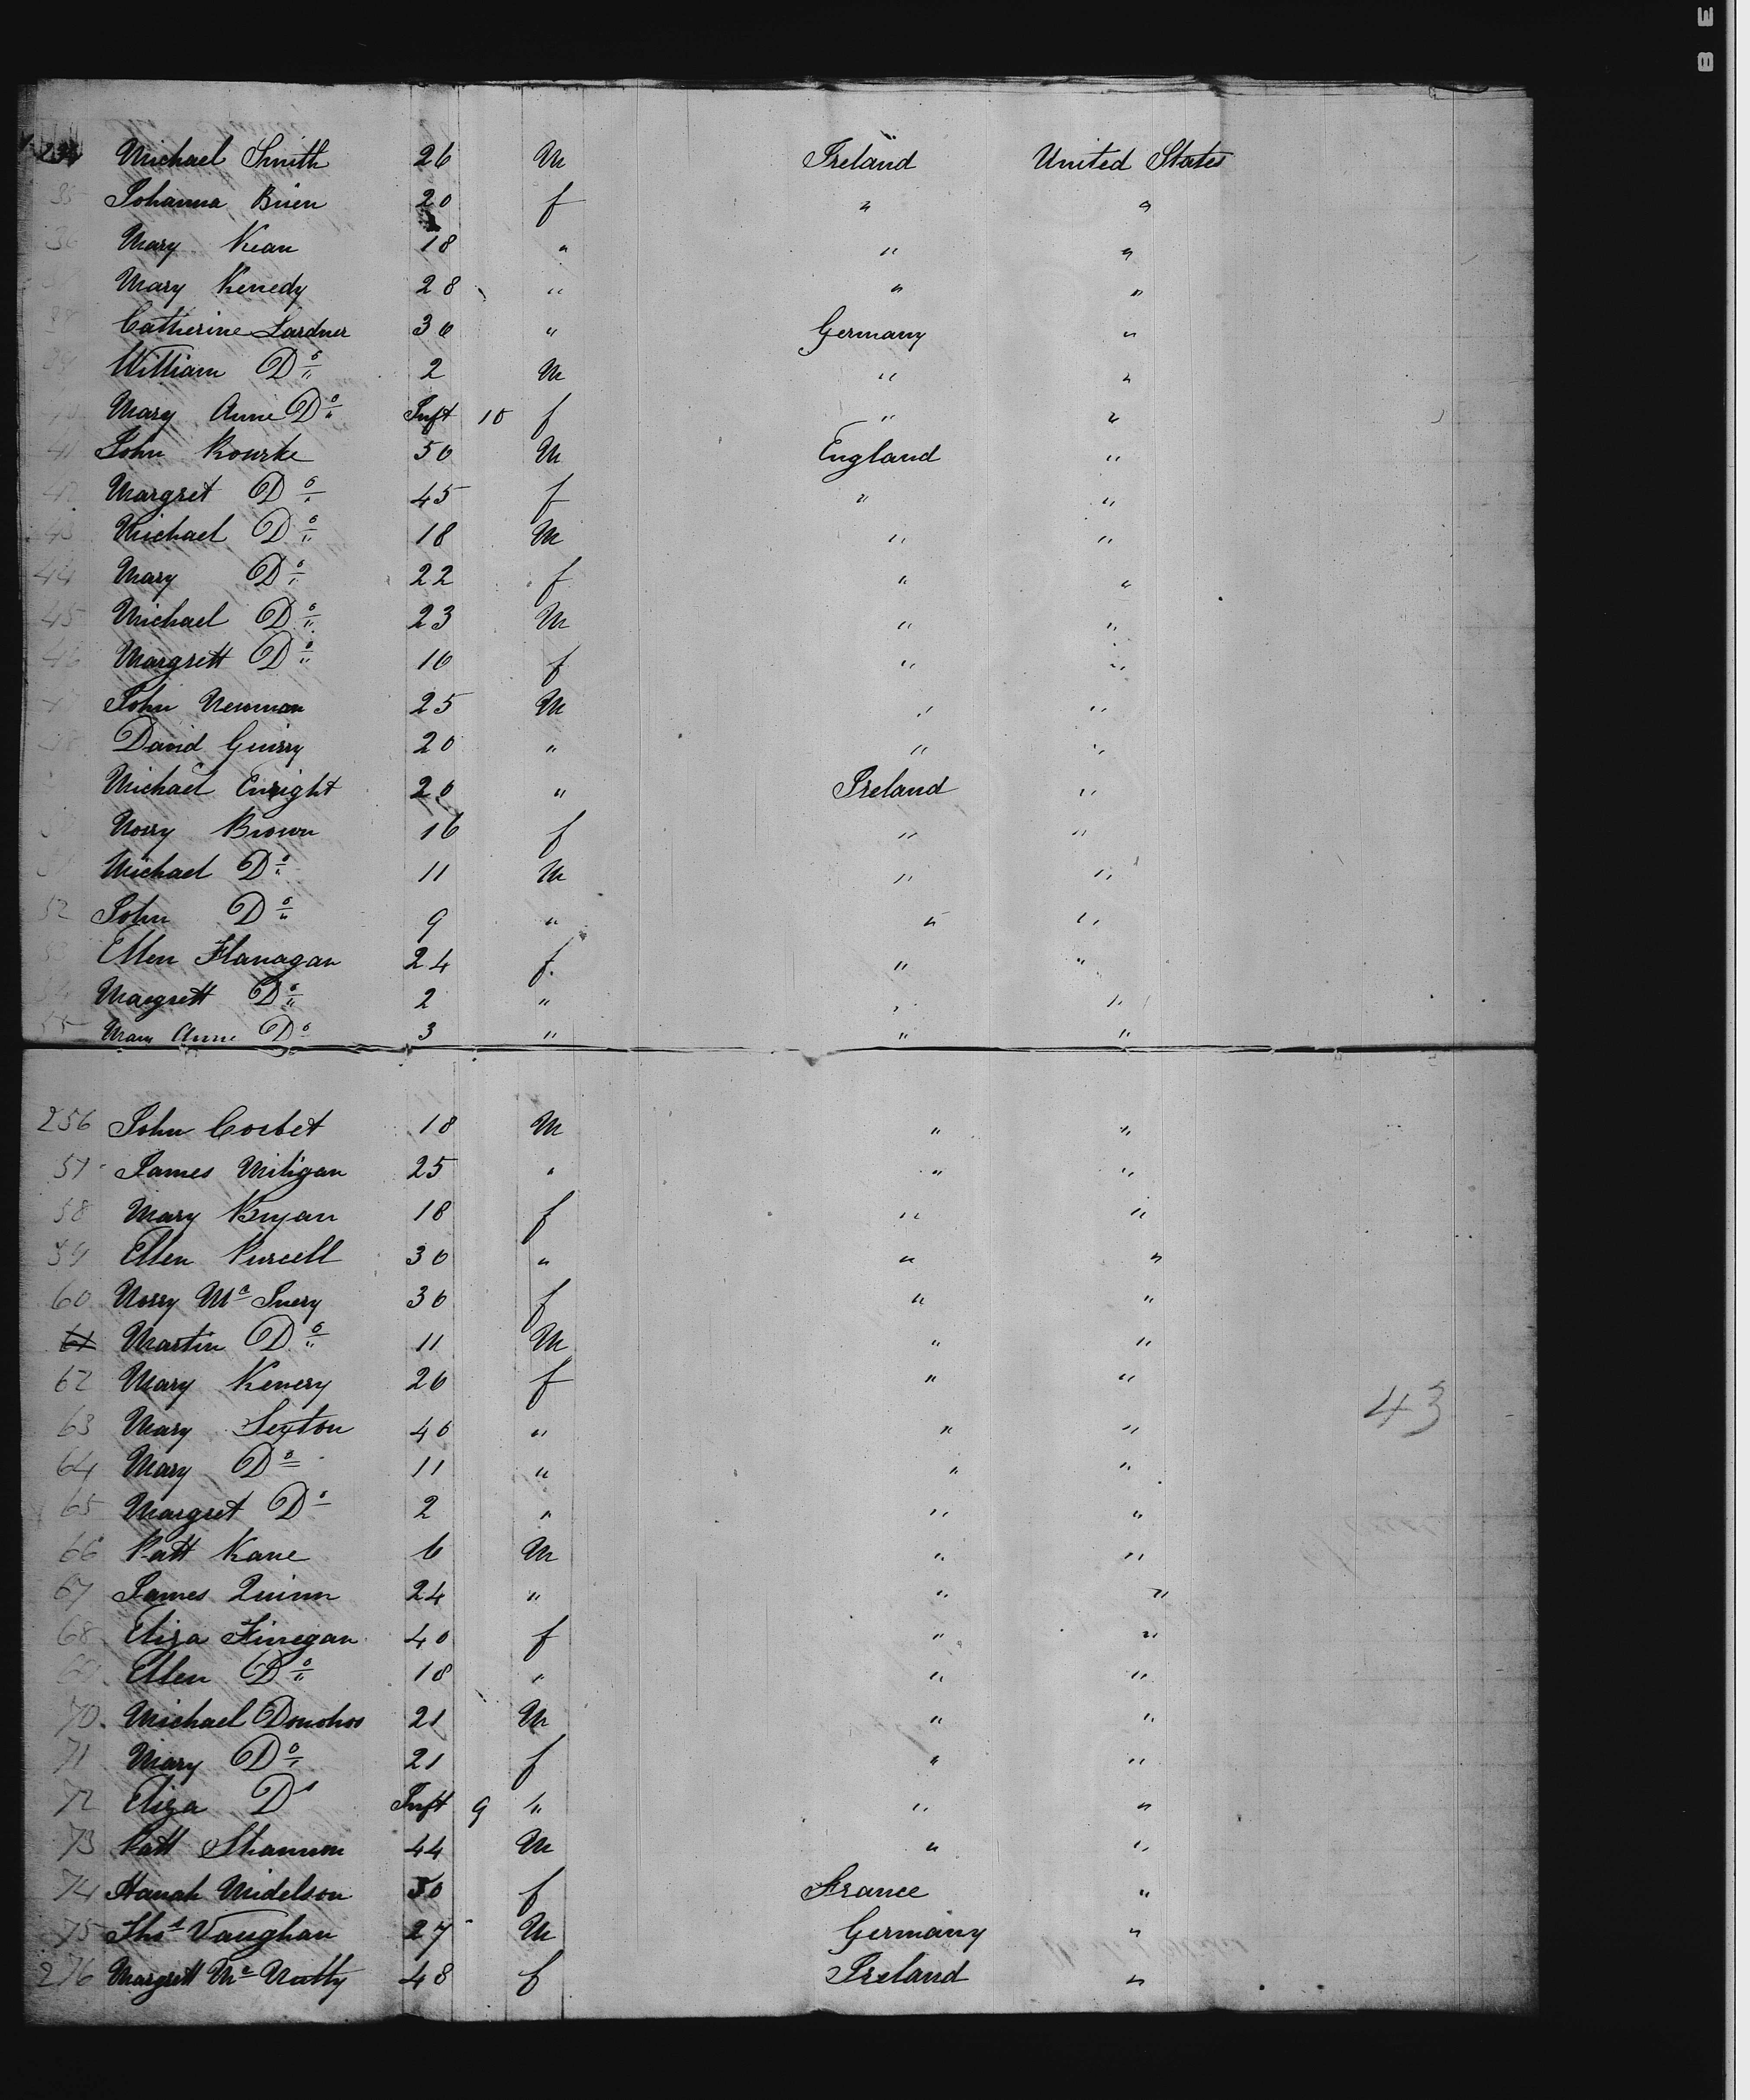 234 Michael Smith 26 M Ireland United States
35 Johanna Brien 20 f " "
36 Mary Kean 18 " " "
Mary Kenedy 28 " " "
38 Catherine Lardner 30 " Germany "
39 William Do 2 M " "
40 Mary Anne Do Inft 10 f " "
41 John Rourke 50 M England "
42 Margret Do 45 f " "
43 Michael Do 18 M " "
44 Mary Do 22 f " "
45 Michael Do 23 M " "
46 Margrett Do 10 f " "
47 John Newman 25 M " "
48 David Guiry 20 " " "
Michael Enright 20 " Ireland "
50 Norry Brown 16 f " "
51 Michael Do 11 M " "
52 John Do 9 " " "
53 Ellen Flanagan 24 f. " "
54 Margrett Do 2 " " "
55 Mary Anne Do 3 " " "
256 John Corbet 18 M " "
57 James Miligan 25 " " "
58 Mary Bryan 18 f " "
59 Ellen Purcell 30 " " "
60 Norry Mc Inery 30 f " "
61 Martin Do 11 M " "
62 Mary Kenery 20 f " "
63 Mary Sexton 40 " " "
64 Mary Do 11 " " "
65 Margret Do 2 " " "
66 Patt Kane 6 M " "
67 James Quinn 24 " " "
68 Eliza Finegan 40 f " "
69 Ellen Do 18 " " "
70 Michael Donohoo 21 M " "
71 Mary Do 21 f " "
72 Eliza Do Inft 9 " " "
73 Patt Shannon 44 M " "
74 Hanah Midelson 50 f France "
75 Thos Vaughan 27 M Germany "
276 Margrett Mc Nulty 48 f Ireland "
43